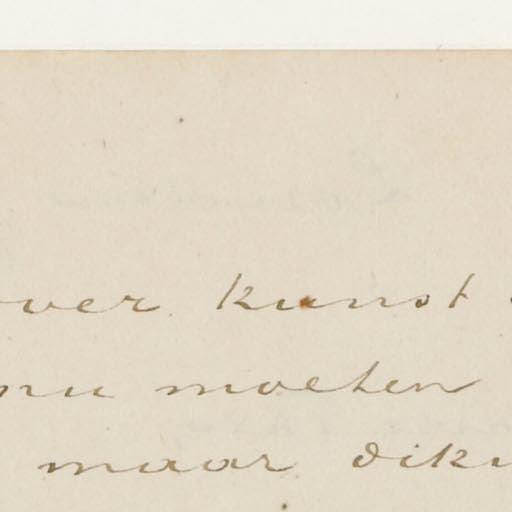 over kunst
nu moeten
maar dik